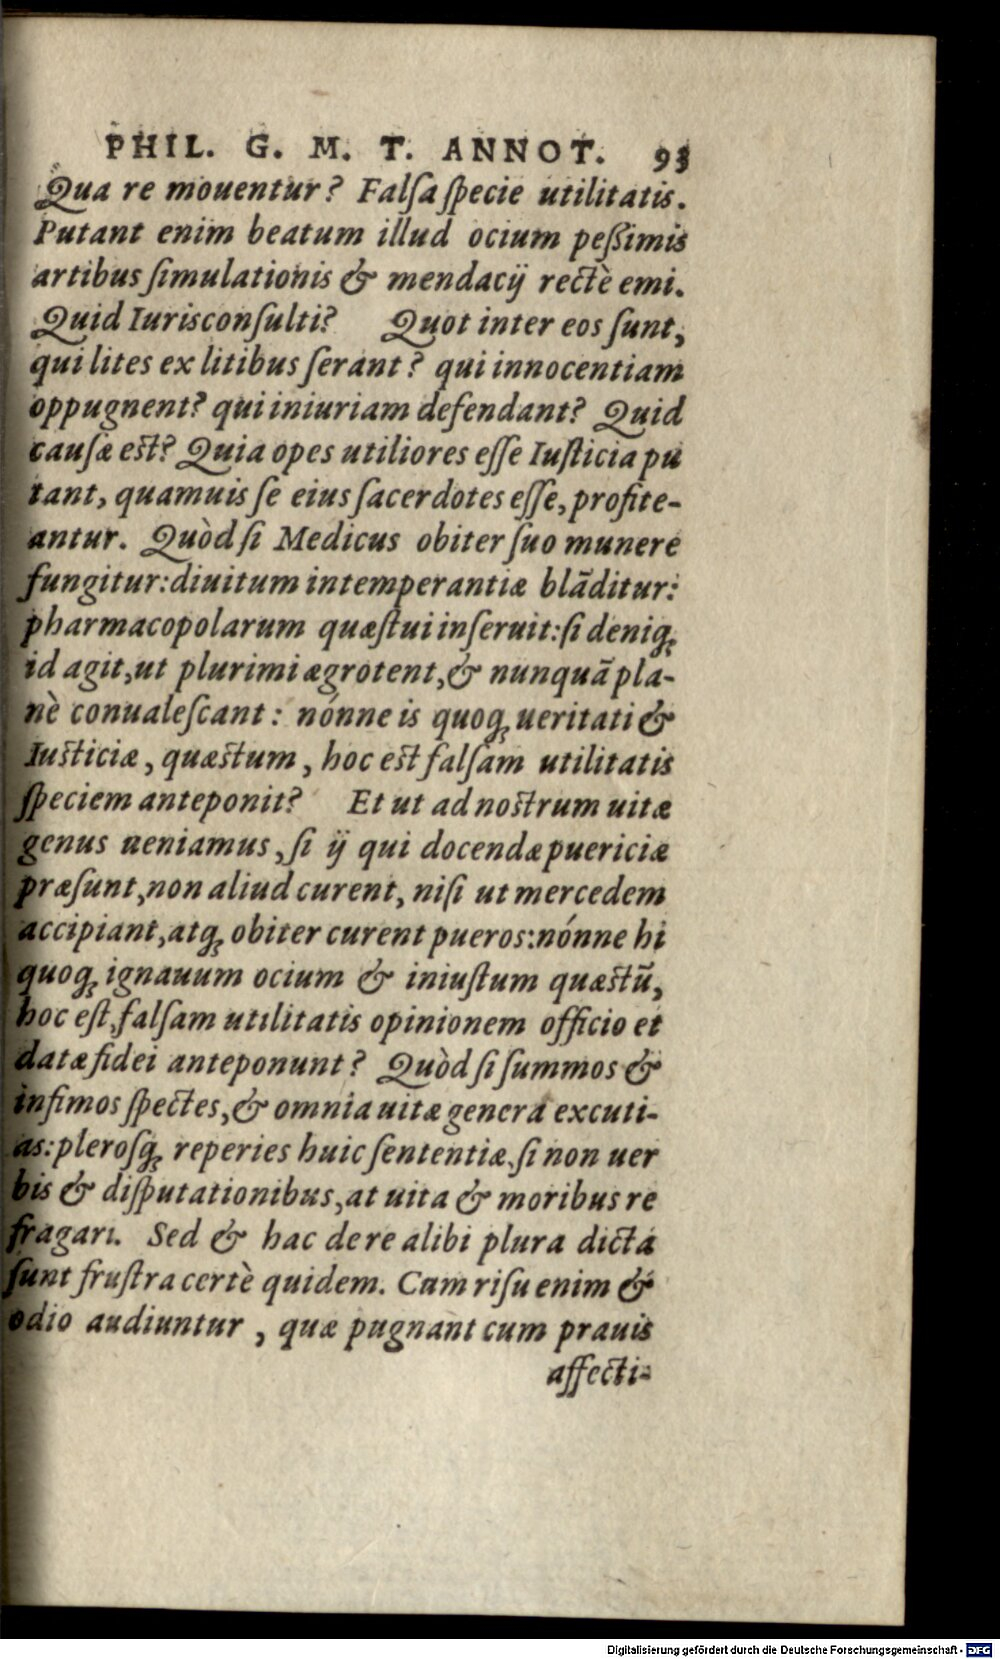 PHIL. G. M. T. ANNOT. 93
Qua re mouentur? Falſa ſpecie utilitatis.
Putant enim beatum illud ocium peßimis
artibus ſimulationis & mendacij rectè emi.
Quid Iurisconſulti? Quot inter eos ſunt,
qui lites ex litibus ſerant? qui innocentiam
oppugnent? qui iniuriam defendant? Quid
cauſæ est? Quia opes utiliores eſſe Iuſticia pu
tant, quamuis ſe eius ſacerdotes eſſe, profite-
antur. Quòd ſi Medicus obiter ſuo munere
fungitur: diuitum intemperantiæ blãditur:
pharmacopolarum quæſtui inſeruit: ſi deniq́;
id agit, ut plurimi ægrotent, & nunquã pla-
nè conualeſcant: nónne is quoq; ueritati &
Iusticiæ, quæstum, hoc est falſam utilitatis
ſpeciem anteponit? Et ut ad nostrum uitæ
genus ueniamus, ſi ij qui docendæ puericiæ
præſunt, non aliud curent, niſi ut mercedem
accipiant, atq; obiter curent pueros: nónne hi
quoq; ignauum ocium & iniuſtum quæstũ,
hoc eſt, falſam utilitatis opinionem officio et
datæ fidei anteponunt? Quòd ſi ſummos &
infimos ſpectes, & omnia uitæ genera excuti-
as: pleroſq; reperies huic ſententiæ, ſi non uer
bis & diſputationibus, at uita & moribus re
fragari. Sed & hac de re alibi plura dicta
ſunt fruſtra certè quidem. Cum riſu enim &
odio audiuntur, quæ pugnant cum prauis
affecti-
Digitalisierung gefördert durch die Deutsche Forschungsgemeinschaft - DFG